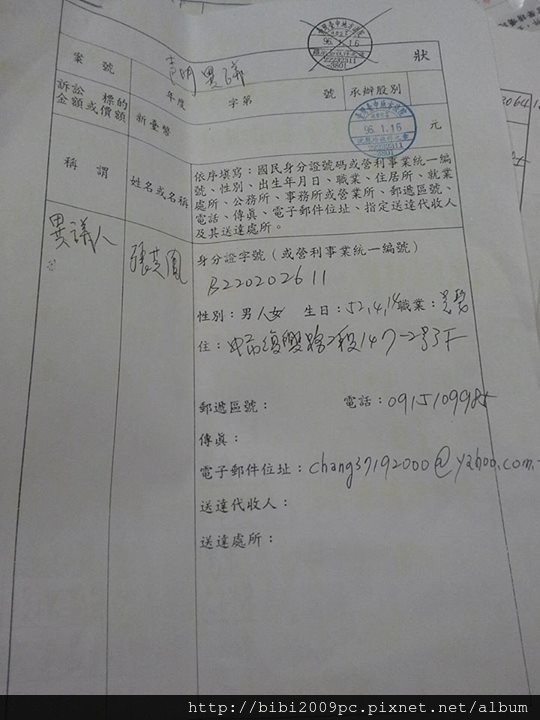 96. 1. 16
聲明異議
狀
案號
年度
字第
號
承辦股別
訴訟標的
金額或價額
新臺幣
96. 1. 16
元
稱謂
姓名或名稱
依序填寫：國民身分證號碼或營利事業統一編
號、性別、出生年月日、職業、住居所、就業
處所、公務所、事務所或營業所、郵遞區號、
電話、傳真、電子郵件位址、指定送達代收人
及其送達處所。
異議人
身分證字號（或營利事業統一編號）
B220202611
性別：男／女 生日：52,4,14 職業：
住：中市復興路2段147-2號3F
郵遞區號：
電話：0915109985
傳真：
電子郵件位址：chang37192000@yahoo.com.
送達代收人：
送達處所：
http://bibi2009pc.pixnet.net/album